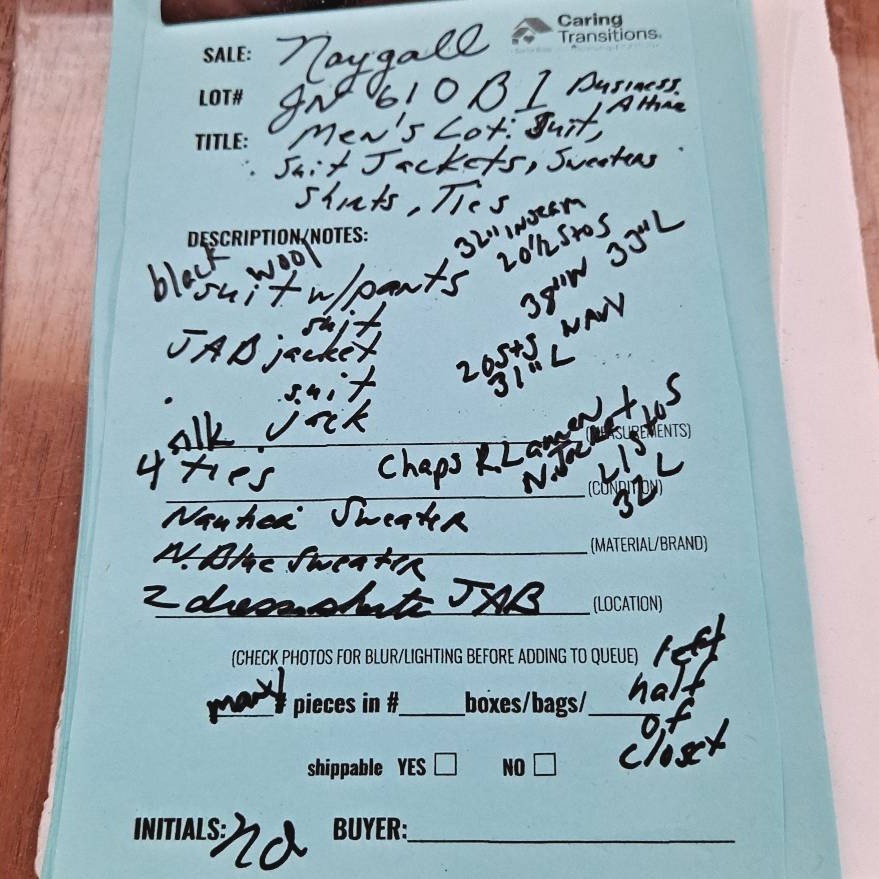 Caring
Transitions®
SALE: Naygall
LOT# JN 610 B I Business Attire
TITLE: Men's Lot: Suit,
Suit Jackets, Sweaters
Shirts, Ties
DESCRIPTION/NOTES:
black wool 32" INSEAM
suit w/pants 20 1/2 StoS
38"W 33"L
JAB suit jacket NAVY
20 StS
31"L
suit
jack
silk
(MEASUREMENTS)
4 ties Chaps R. Lauren
N. Jacket StoS
32 L
(CONDITION)
Nautica Sweater
(MATERIAL/BRAND)
N. Blue Sweater
2 dress shirts JAB (LOCATION)
(CHECK PHOTOS FOR BLUR/LIGHTING BEFORE ADDING TO QUEUE)
left
half
of
closet
many # pieces in # boxes/bags/
shippable YES NO
INITIALS: nd BUYER: